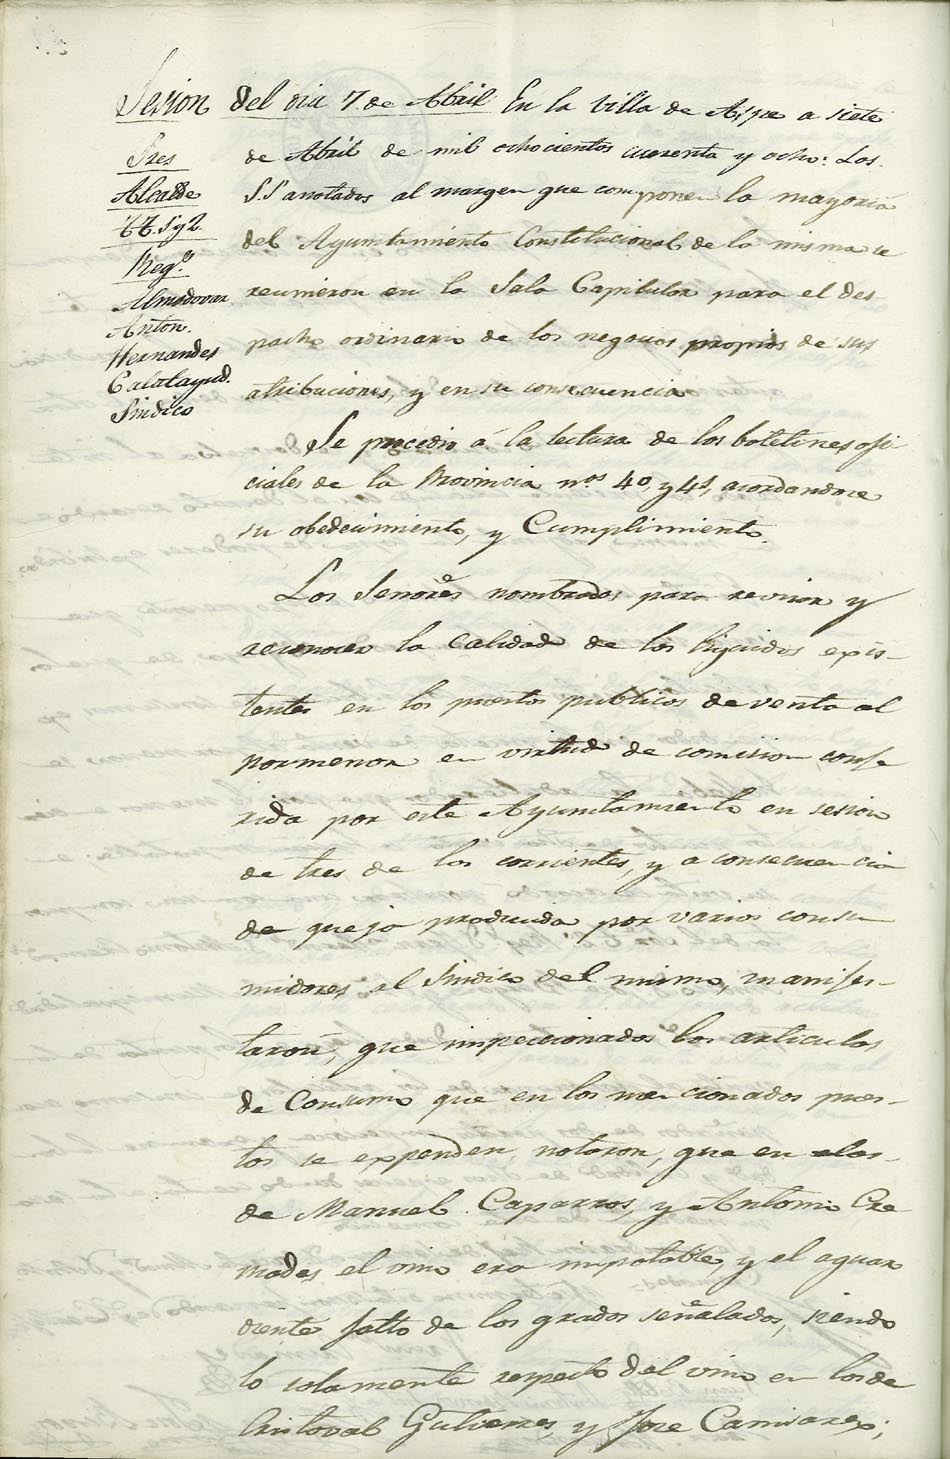 Sesion del dia 7 de Abril. En la Villa de Aspe a siete
de Abril de mil ochocientos cuarenta y ocho: Los
S.S anotados al margen que componen la mayoria
del Ayuntamiento Constitucional de la misma se
reunieron en la Sala Capitular para el des-
pacho ordinario de los negocios propios de sus
atribuciones, y en su consecuencia
Sres
Alcalde
TT. 1 y 2.
Reg.s
Almodovar
Anton.
Hernandes
Calatayud.
Sindico
Se procedio á la lectura de los boletines ofi-
ciales de la Provincia nos 40, y 41, acordandose
su obedecimiento, y Cumplimiento.
Los Señores nombrados para revisar y
reconocer la calidad de los liquidos exis-
tentes en los puestos publicos de venta al
pormenor en virtud de comision confe
rida por este Ayuntamiento en sesion
de tres de los corrientes, y a consecuencia
de queja producida por varios consu
midores, al Sindico del mismo, manifes-
taron, que inspeccionados los articulos
de Consumo que en los mencionados pues-
tos se expenden, notaron, que en elos-
de Manuel Caparros, y Antonio Cre
mades, el vino era impotable, y el aguar
diente falto de los grados señalados, siendo
lo solamente respecto del vino en los de
Cristoval Gutierres, y Jose Camisares;